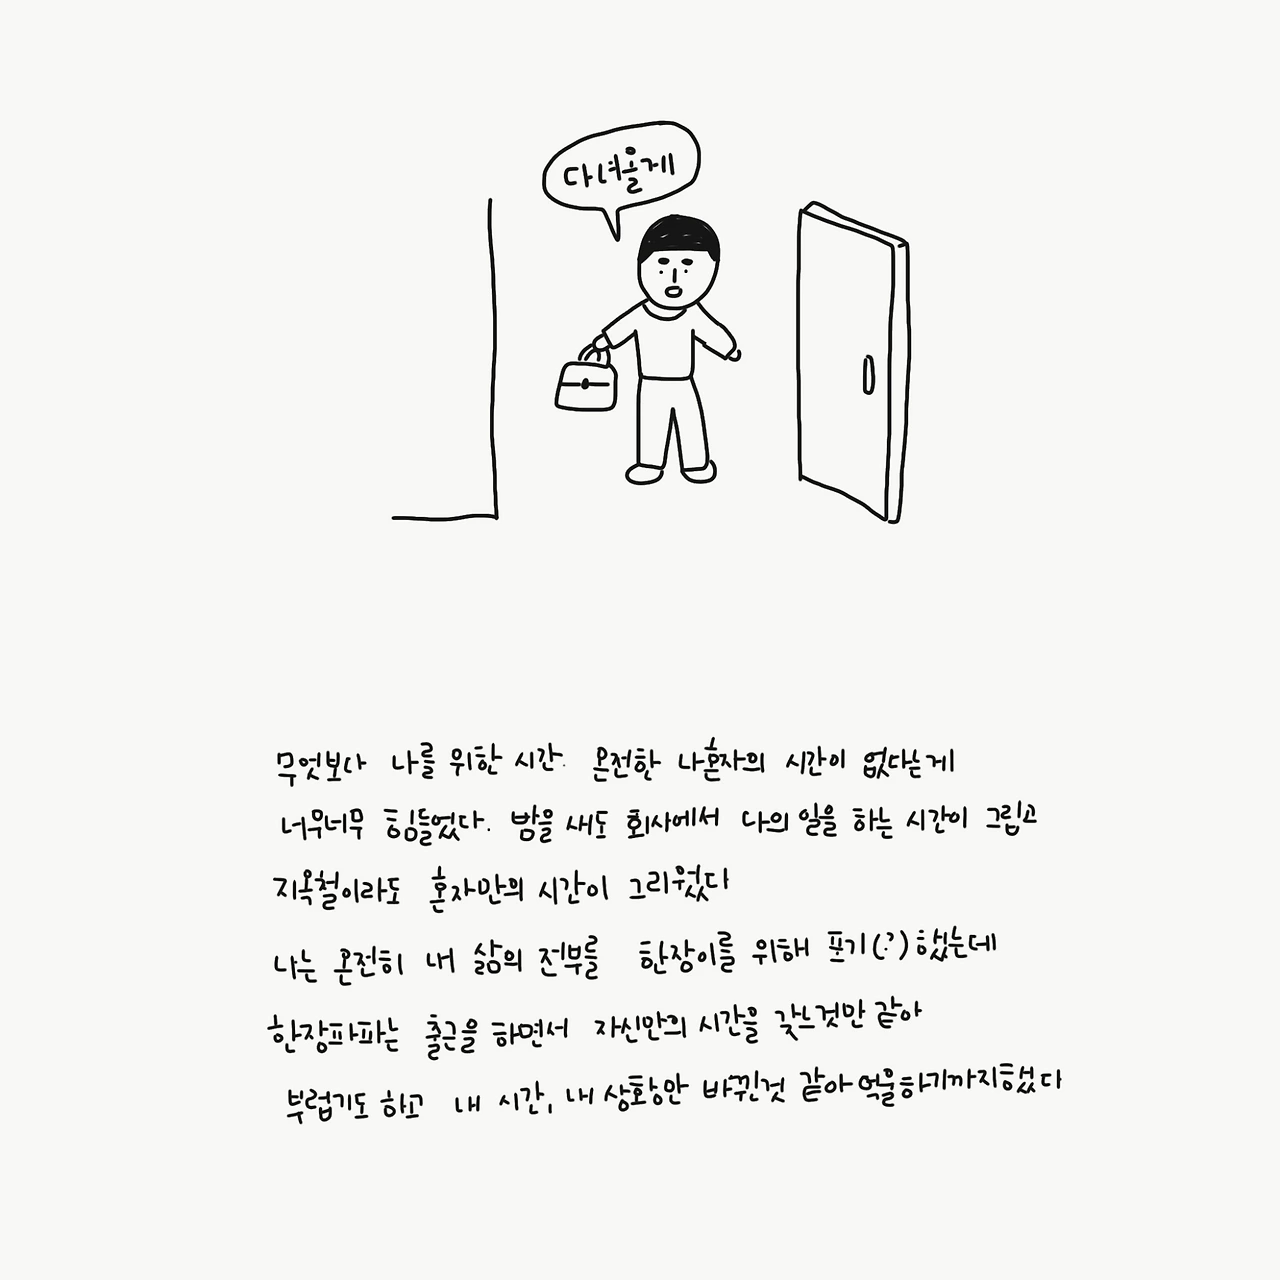 다녀올게
무엇보다 나를 위한 시간. 온전한 나혼자의 시간이 없다는게
너무너무 힘들었다. 밤을 새도 회사에서 나의 일을 하는 시간이 그립고
지옥철이라도 혼자만의 시간이 그리웠다
나는 온전히 내 삶의 전부를 한장이를 위해 포기(?)했는데
한장파파는 출근을 하면서 자신만의 시간을 갖는것만 같아
부럽기도 하고 내 시간, 내 상황만 바뀐것 같아 억울하기까지했다